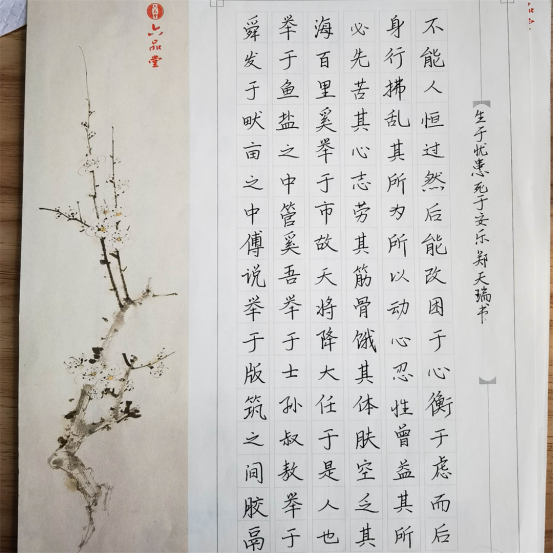 六品堂
舜发于畎亩之中傅说举于版筑之间胶鬲
举于鱼盐之中管奚吾举于士孙叔敖举于
海百里奚举于市故天将降大任于是人也
必先苦其心志劳其筋骨饿其体肤空乏其
身行拂乱其所为所以动心忍性曾益其所
不能人恒过然后能改困于心衡于虑而后
生于忧患死于安乐 郑天瑞书